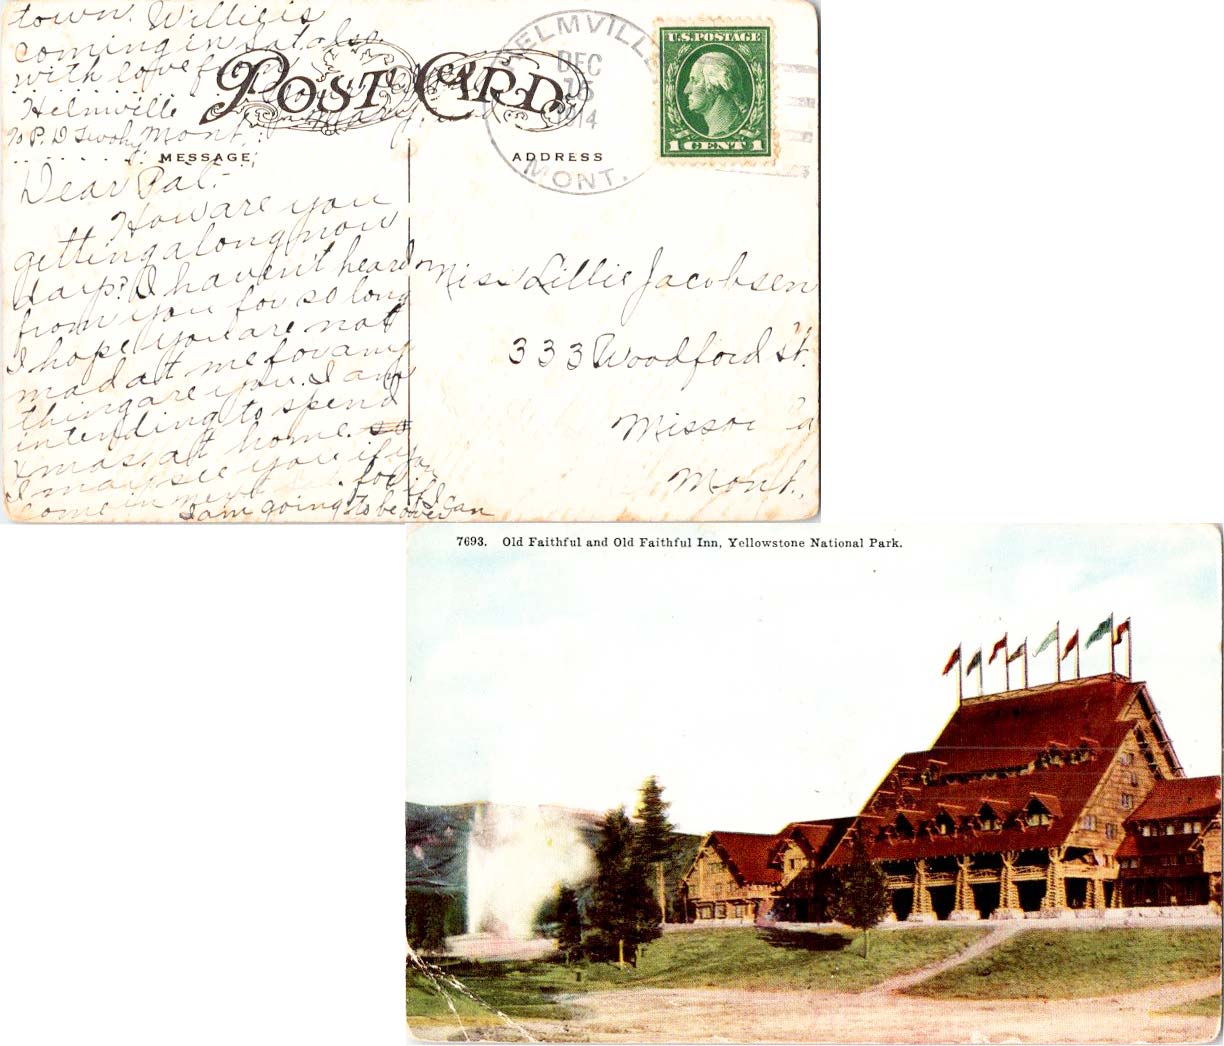 town. Willie is
coming in Sat. also.
with love from
Mary.
Helmville
Mont.
℅ P. D
POST CARD
MESSAGE
ADDRESS
HELMVILLE
DEC
15
1914
MONT.
U.S. POSTAGE
1 CENT 1
Dear Pal:-
How are you
getting along now
days? I haven't heard
from you for so long
I hope you are not
mad at me for any
thing are you. I am
intending to spend
Xmas. at home. so
I may see you if you
come in for
I am going to be over if I can
Miss Lillie Jacobsen
333 Woodford St.
Mont.
7693. Old Faithful and Old Faithful Inn, Yellowstone National Park.